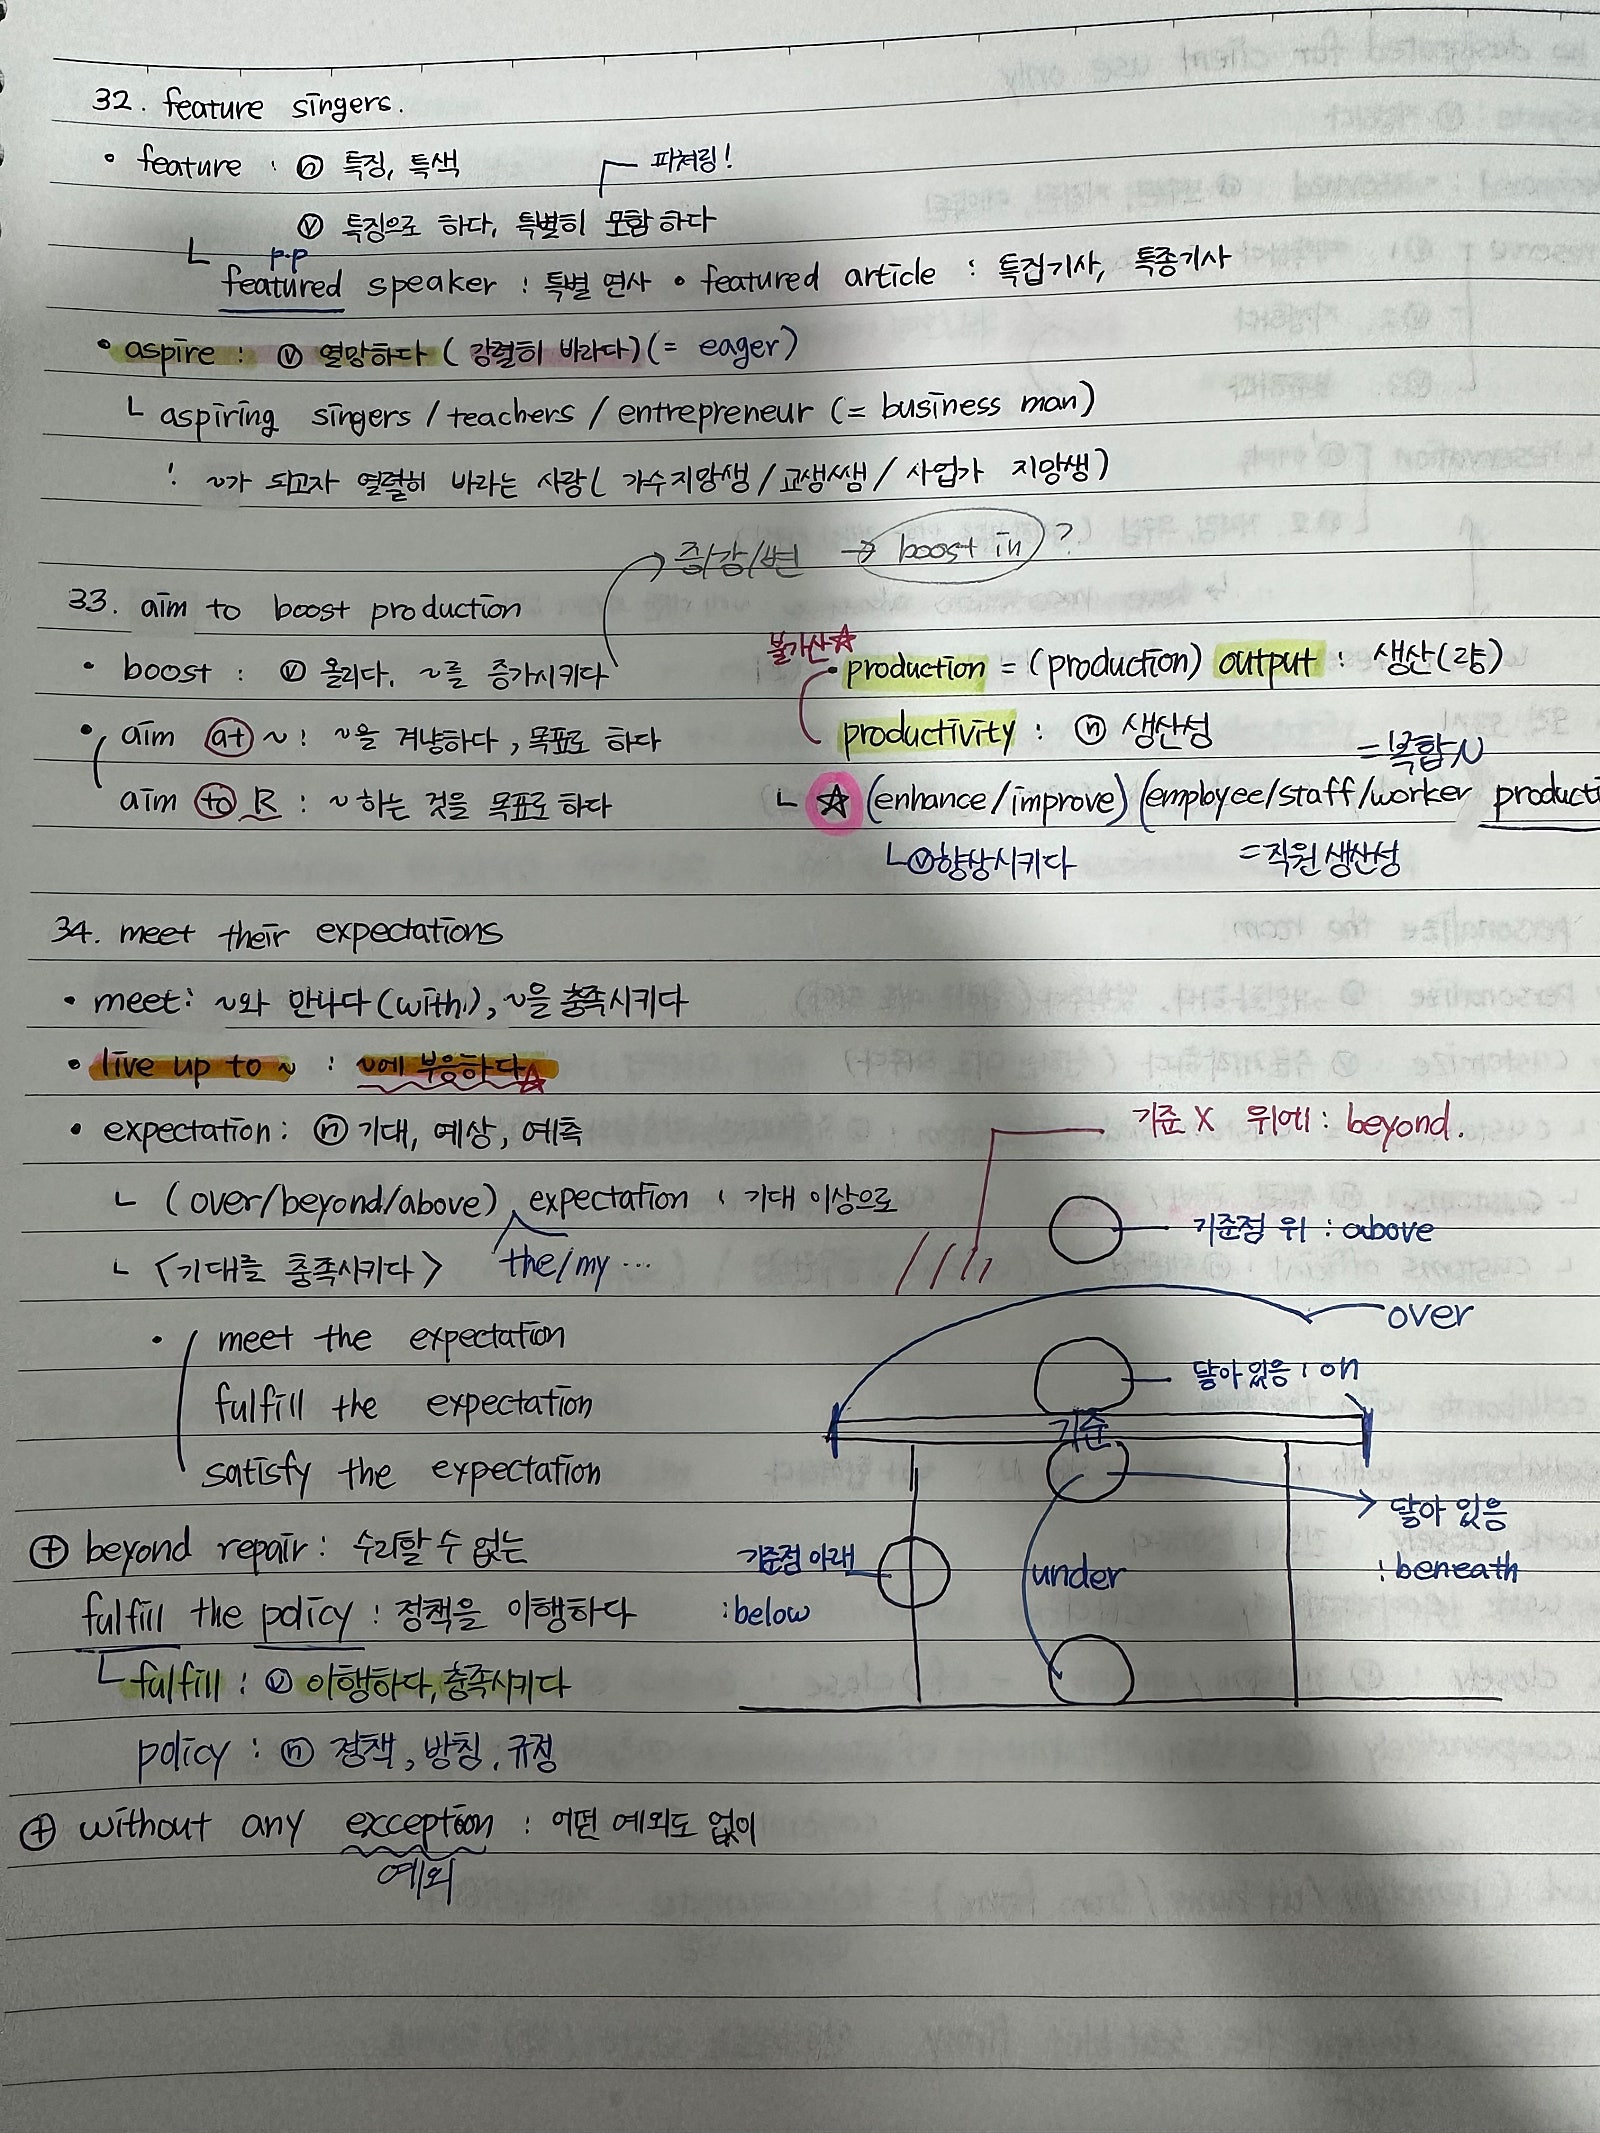 32. feature singers.
• feature : ⓝ 특징, 특색
파쳐링!
ⓥ 특징으로 하다, 특별히 포함 하다
p.p
└ featured speaker : 특별 연사 • featured article : 특집기사, 특종기사
• aspire : ⓥ 열망하다 ( 강렬히 바라다) (= eager)
└ aspiring singers / teachers / entrepreneur (= business man)
: ~가 되고자 열렬히 바라는 사람( 가수지망생 / 교생쌤 / 사업가 지망생)
증/강/변 → boost in ?
33. aim to boost production
• boost : ⓥ 올리다. ~를 증가시키다
• aim at ~ : ~을 겨냥하다, 목표로 하다
aim to R : ~하는 것을 목표로 하다
불가산☆
• production = (production) output : 생산(량)
productivity : ⓝ 생산성
= 복합N
└ ☆ (enhance/improve) (employee/staff/worker producti
└ⓥ향상시키다 =직원생산성
34. meet their expectations
• meet: ~와 만나다 (with), ~을 충족시키다
• live up to ~ : ~에 부응하다☆
• expectation : ⓝ 기대, 예상, 예측
└ (over/beyond/above) expectation : 기대 이상으로
the/my ...
└ <기대를 충족시키다>
• meet the expectation
fulfill the expectation
satisfy the expectation
⊕ beyond repair : 수리할 수 없는
fulfill the policy : 정책을 이행하다
└ fulfill : ⓥ 이행하다, 충족시키다
policy : ⓝ 정책, 방침, 규정
⊕ without any exception : 어떤 예외도 없이
예외
기준 X 위에 : beyond.
기준점 위 : above
over
닿아 있음 : on
기준
닿아 있음
: beneath
under
기준점 아래
: below